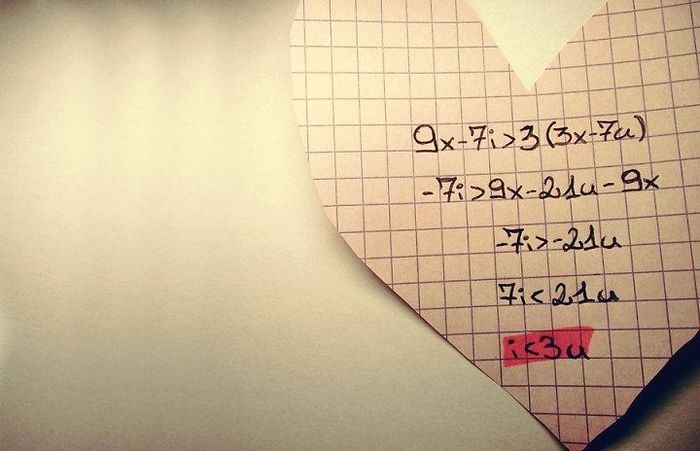 9x-7i>3(3x-7u)
-7i>9x-21u-9x
-7i>-21u
7i<21u
i<3u